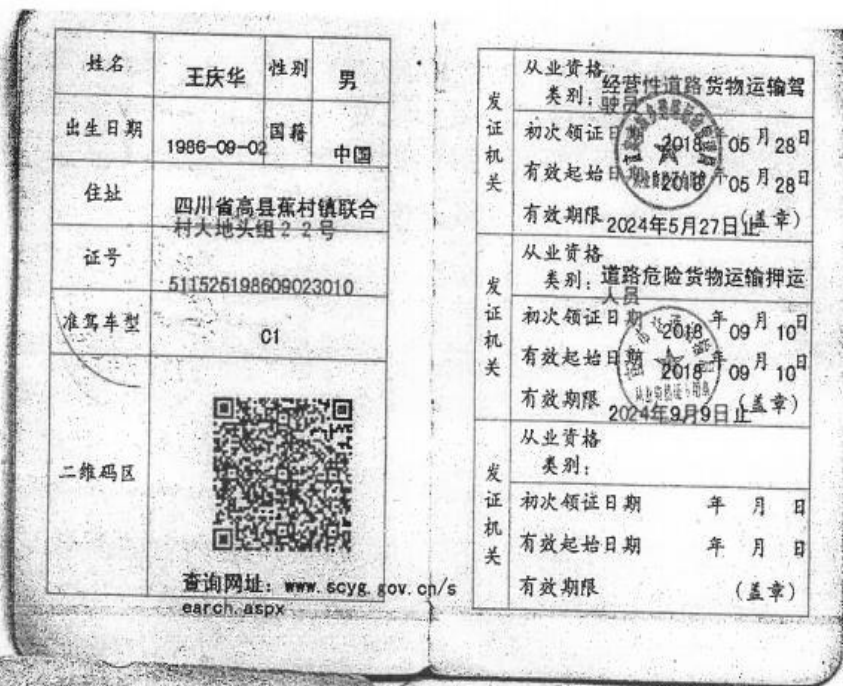 姓名 王庆华 性别 男
出生日期 1986-09-02 国籍 中国
住址 四川省高县蕉村镇联合
村大地头组22号
证号 511525198609023010
准驾车型 C1
二维码区
查询网址：www.scyg.gov.cn/s
earch.aspx
发证机关
从业资格
类别：经营性道路货物运输驾
驶员
初次领证日期 2018年05月28日
有效起始日期 2018年05月28日
有效期限 2024年5月27日止(盖章)
发证机关
从业资格
类别：道路危险货物运输押运
人员
初次领证日期 2018年09月10日
有效起始日期 2018年09月10日
有效期限 2024年9月9日止(盖章)
从业资格证专用章
发证机关
从业资格
类别：
初次领证日期 年 月 日
有效起始日期 年 月 日
有效期限 (盖章)